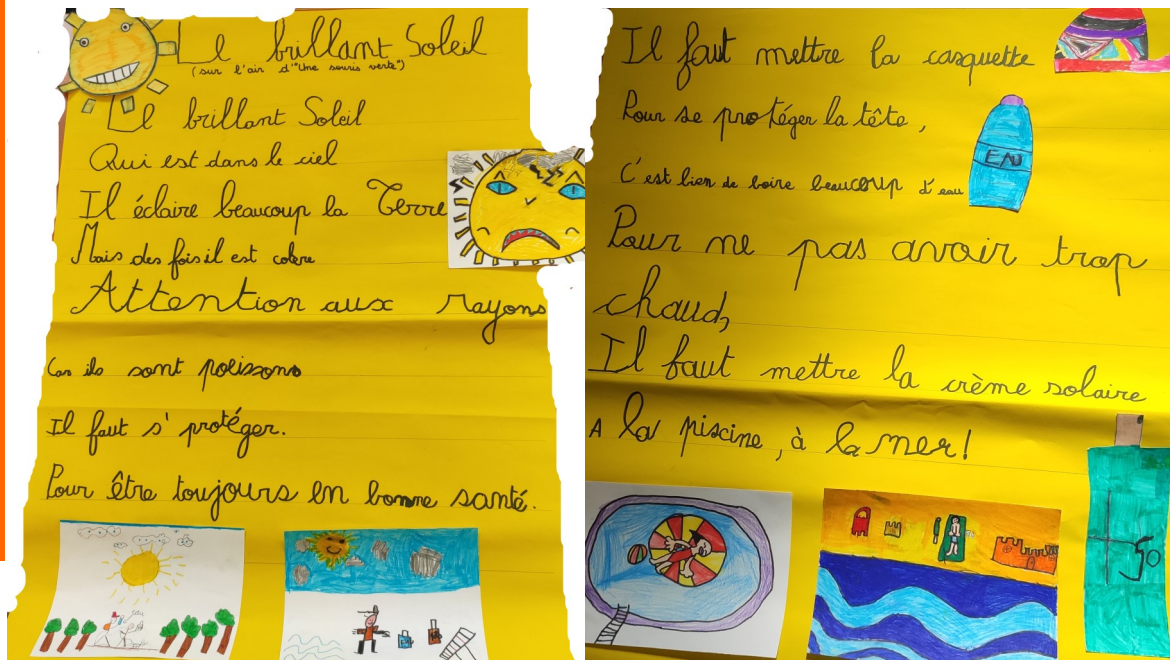 Le brillant Soleil
(sur l'air d'"Une souris verte")
Le brillant Soleil
Qui est dans le ciel
Il éclaire beaucoup la Terre
Mais des fois il est colère
Attention aux rayons
Car ils sont polissons
Il faut s'protéger.
Pour être toujours en bonne santé.
Il faut mettre la casquette
Pour se protéger la tête,
C'est bien de boire beaucoup d'eau
EAU
Pour ne pas avoir trop
chaud,
Il faut mettre la crème solaire
A la piscine, à la mer!
+50